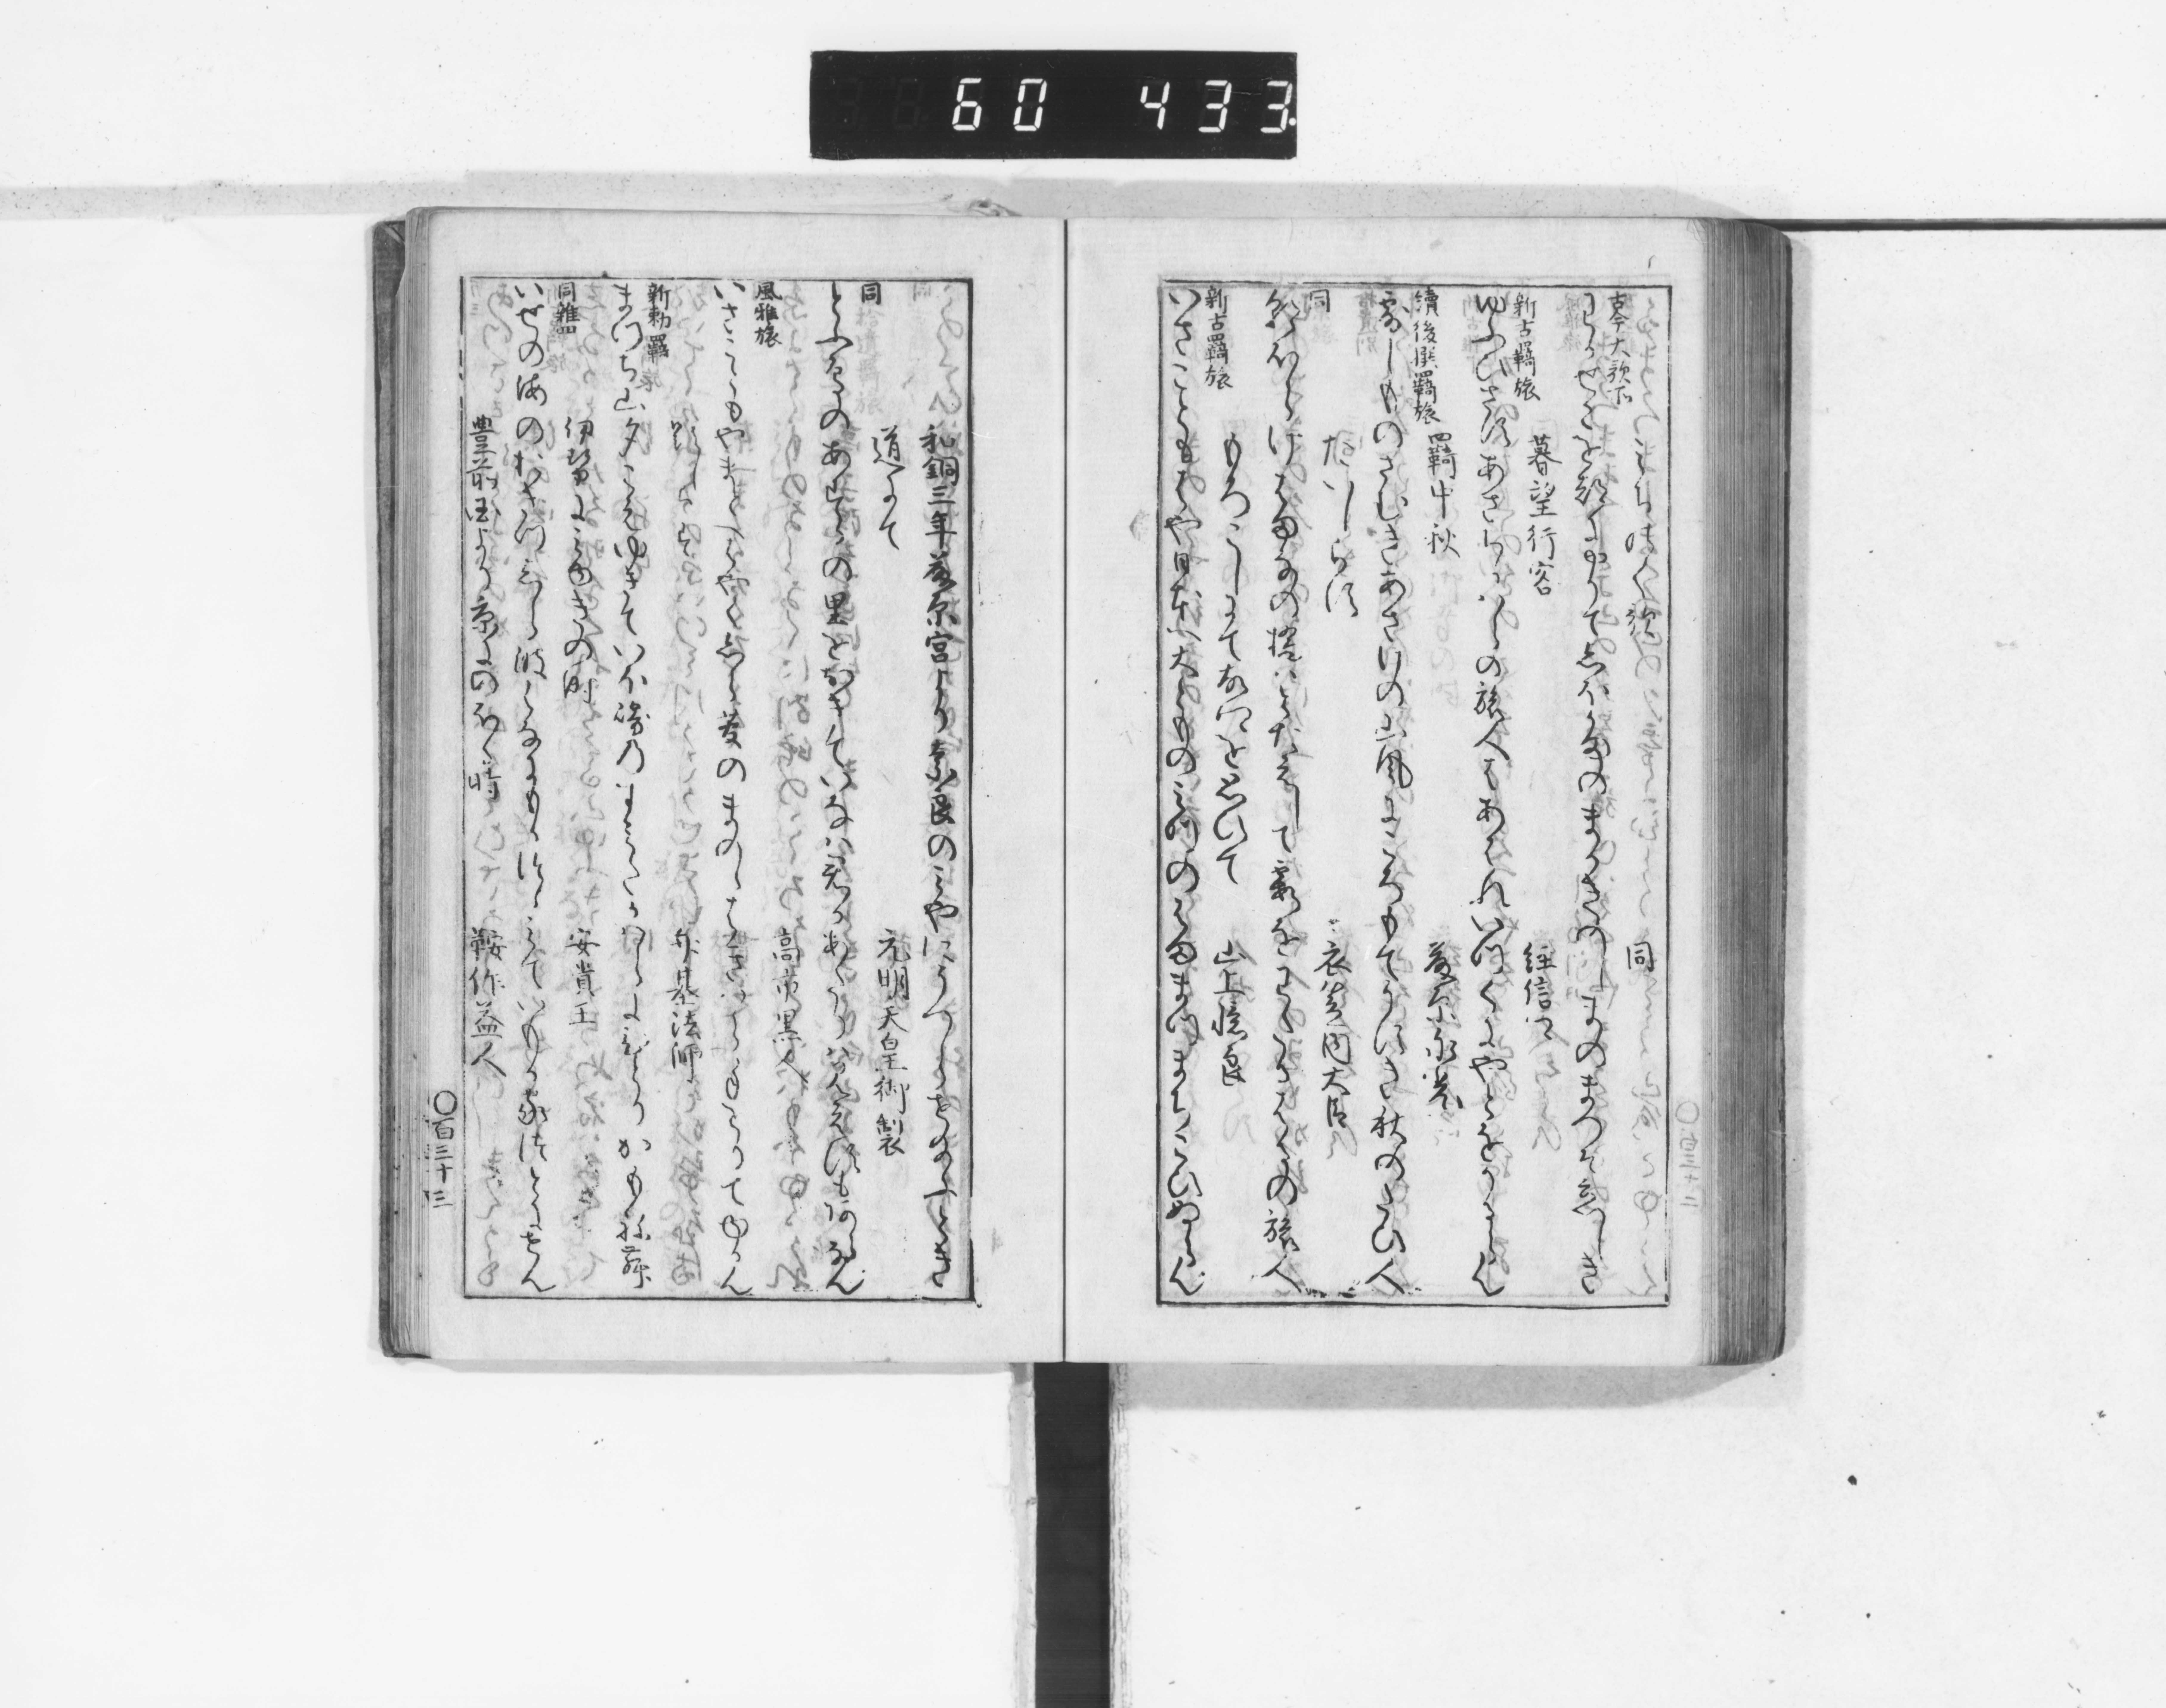 古今大歌所 みちのく歌 同
わかせこを都にやりてしほかまのまかきのしまのまつそ恋しき
新古羇旅 暮望行客 経信卿
ゆふひさすあさちかはらの旅人はあはれいつくにやとをかるらん
續後撰羇旅 羇中秋 藤原永光
露しものさむきあさけの山風にころもてうすき秋のたひ人
同 たいしらす 衣笠内大臣
朝ほらけはまなの橋はとたえして霞をわたるはるの旅人
新古羇旅 もろこしにて よめる 山上憶良
いさこともはや日本へ大とものみつのはままつまちこひぬらん
和銅三年藤原宮より奈良のみやにうつり とき
道にて 元明天皇御製
同
とふ鳥のあすかの里をおきていなは君かあたりはみえすかもあらん
風雅旅 高市黒人
いさこともやまとへはやくしらすけのまののはきはらたをりてゆかん
新勅羇旅 題しらす 弁基法師
まつち山夕こえゆきていほ崎のすみたかはらにひとりかもね舞
同雑四 伊勢にみゆきの時 安貴王
いせの海のおきつしら波はなにもかつゝみていもか家つとにせん
豊前国より京にのほる時 鞍作益人
〇百三十三
60 433